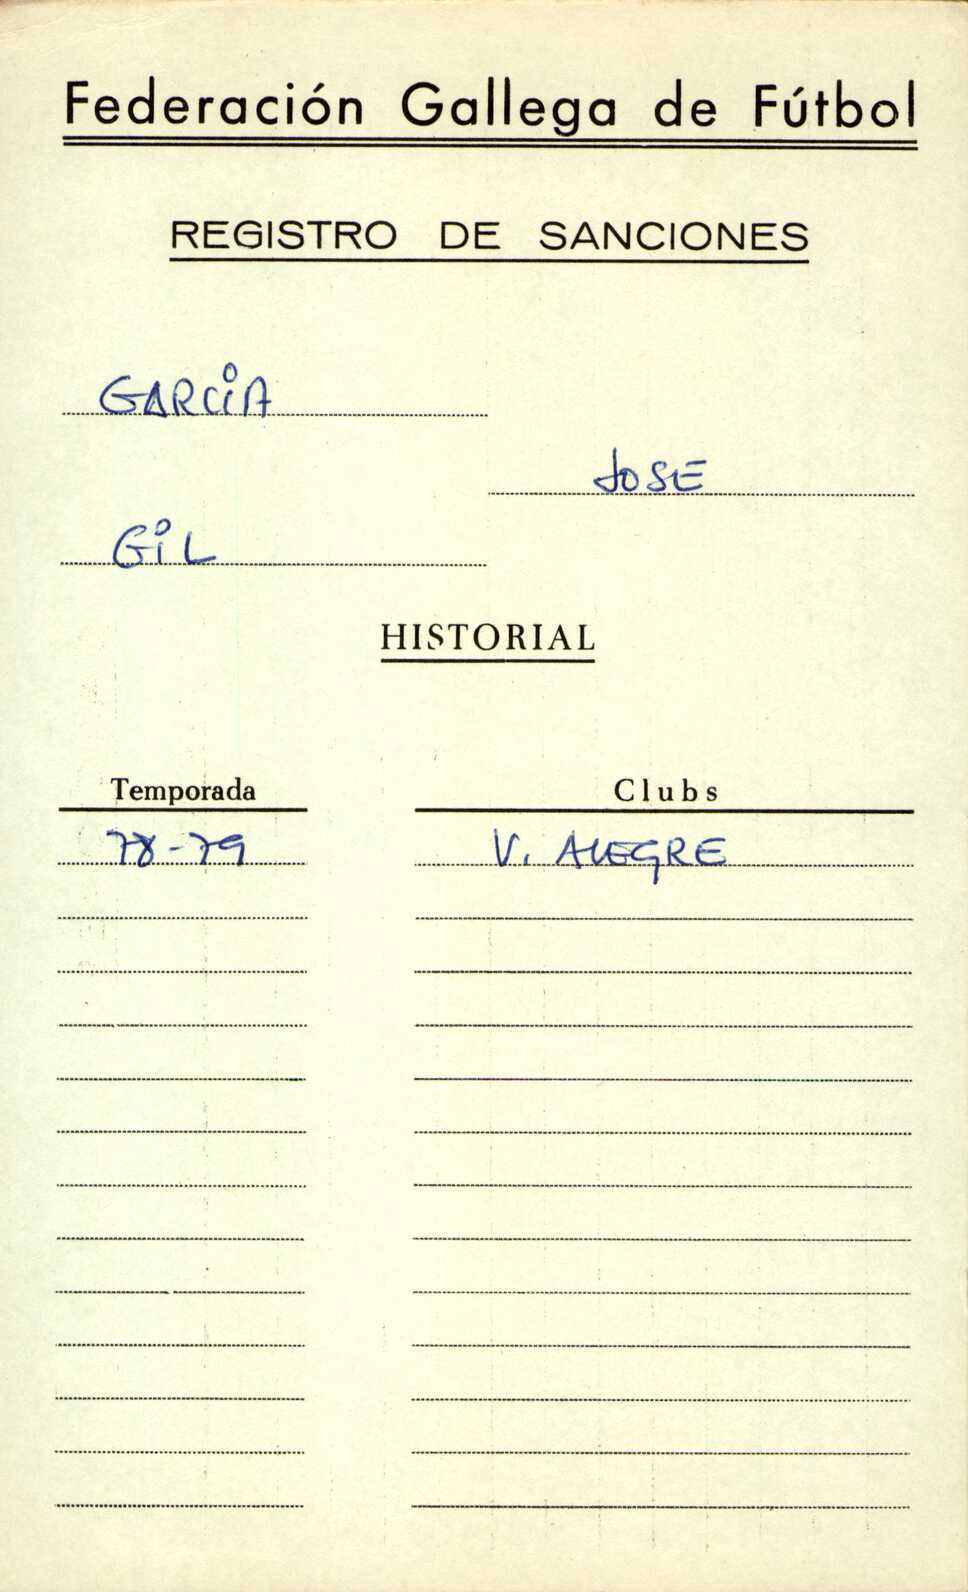 Federación Gallega de Fútbol
REGISTRO DE SANCIONES
GARCIA
JOSE
GIL
HISTORIAL
Temporada Clubs
78-79 V. ALEGRE